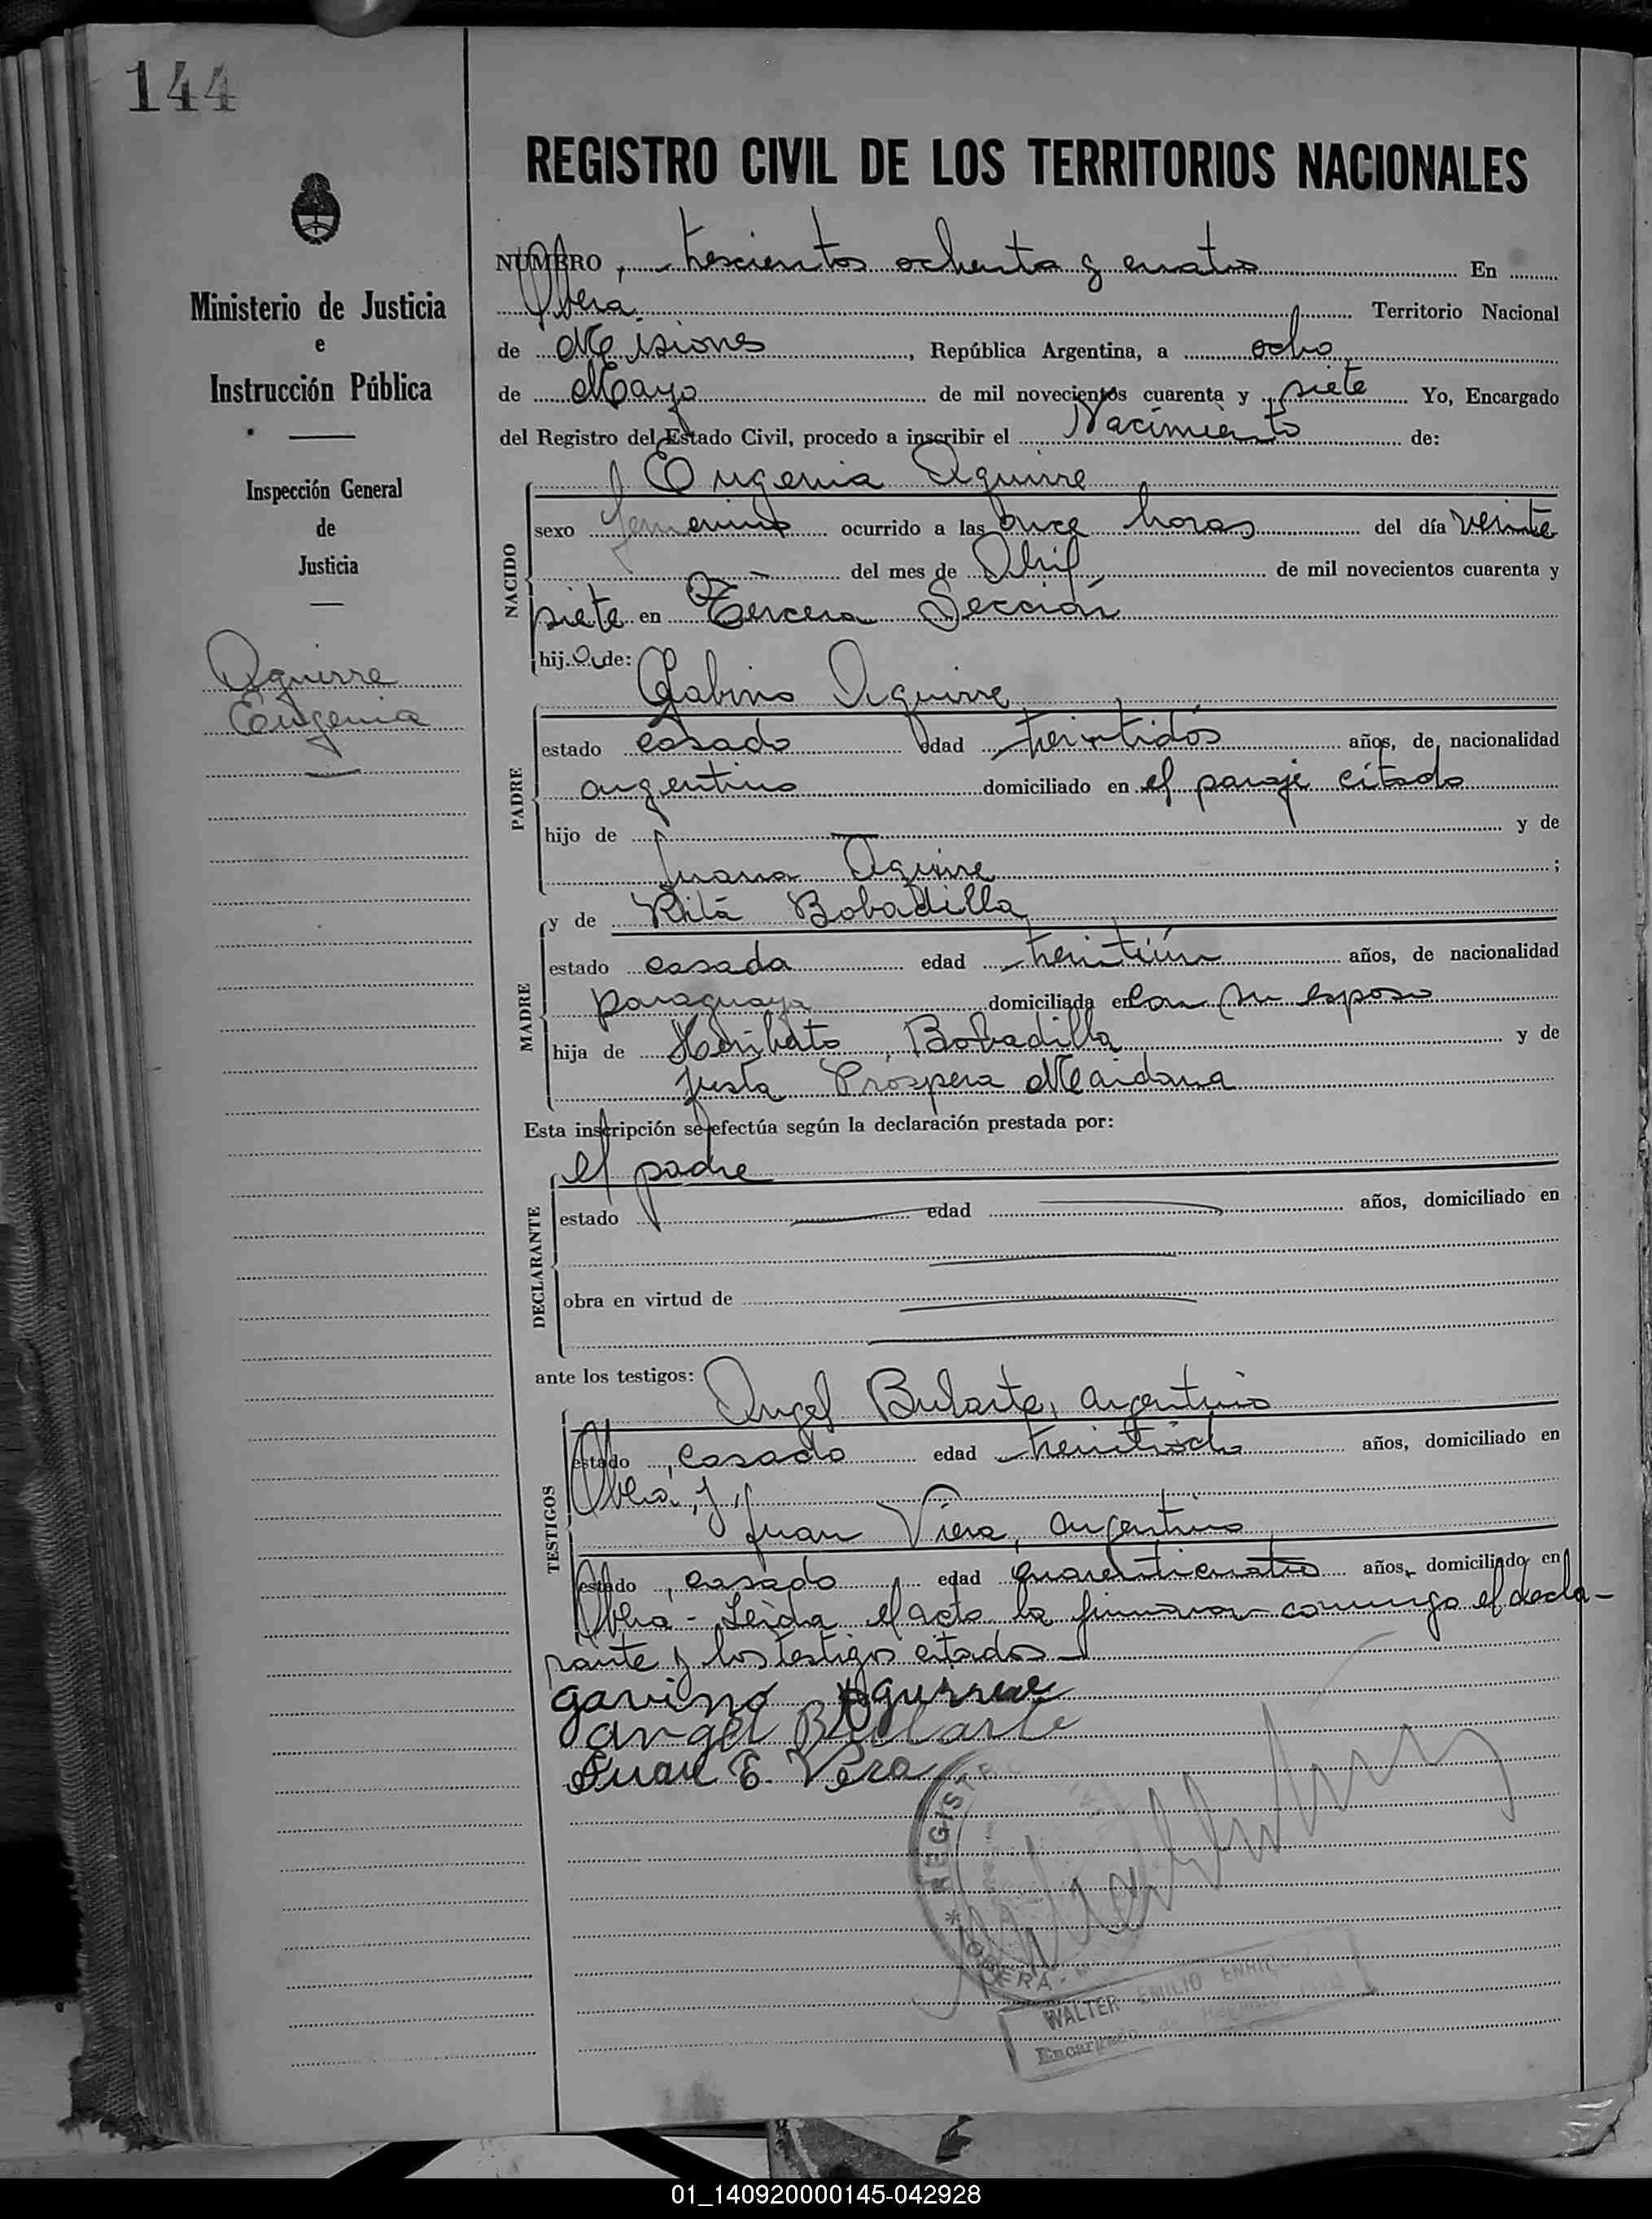 144
REGISTRO CIVIL DE LOS TERRITORIOS NACIONALES
Ministerio de Justicia
e
Instrucción Pública
Inspección General
de
Justicia
Aguirre
Eugenia
NUMERO, trescientos ochenta y cuatro En
Oberá Territorio Nacional
de Misiones, República Argentina, a ocho
de Mayo de mil novecientos cuarenta y siete Yo, Encargado
del Registro del Estado Civil, procedo a inscribir el Nacimiento de:
Eugenia Aguirre
NACIDO
sexo femenino ocurrido a las once horas del día veinte
del mes de Abril de mil novecientos cuarenta y
siete en Tercera Sección
hija de: Gabino Aguirre
PADRE
estado casado edad treintidós años, de nacionalidad
argentino domiciliado en el paraje citado
hijo de — y de
Juana Aguirre ;
y de Rita Bobadilla
MADRE
estado casada edad treintiún años, de nacionalidad
paraguaya domiciliada en con su esposo
hija de Heriberto Bobadilla y de
Justa Próspera Maidana
Esta inscripción se efectúa según la declaración prestada por:
el padre
DECLARANTE
estado edad años, domiciliado en
obra en virtud de
ante los testigos: Angel Bularte, argentino
TESTIGOS
estado, casado edad treintiocho años, domiciliado en
Oberá, y
Juan Viera, argentino
estado, casado edad cuarenticuatro años, domiciliado en
Oberá - Leída el acta la firmaron conmigo el decla-
rante y los testigos citados
gavino Aguirre
angel Bularte
Juan E. Vera
REGISTRO
OBERA
WALTER EMILIO
Encargado
01_140920000145-042928